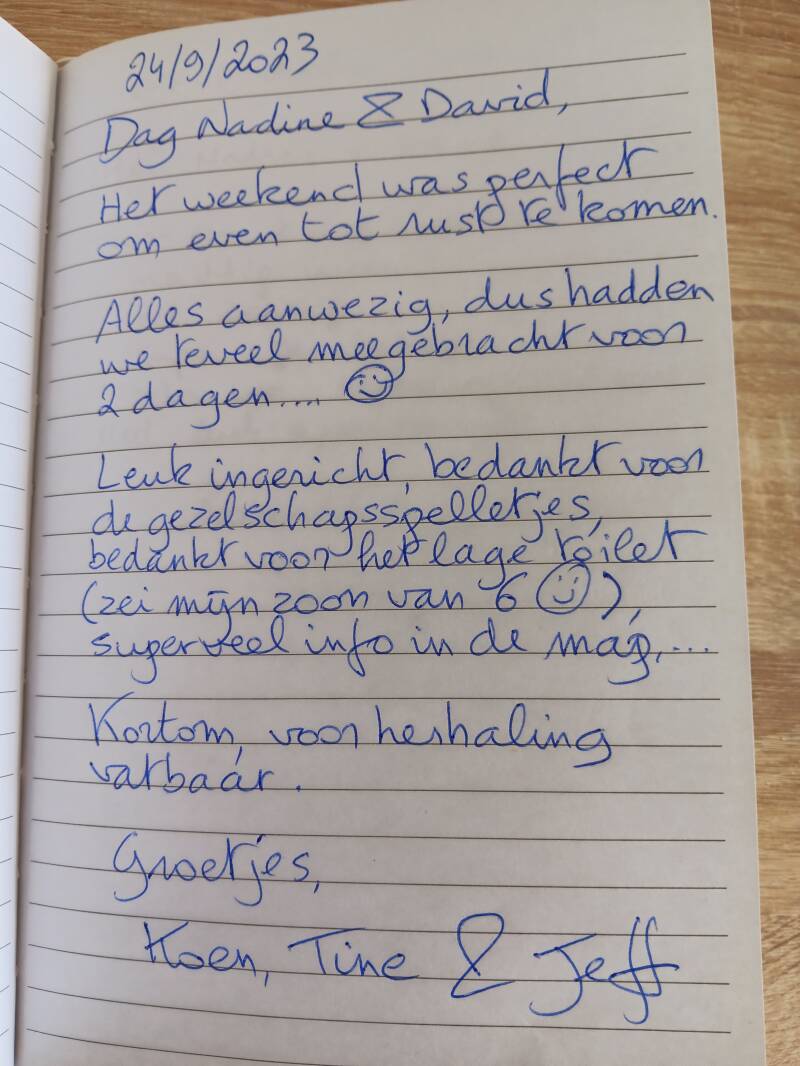 24/9/2023
Dag Nadine & David,
Het weekend was perfect
om even tot rust te komen.
Alles aanwezig, dus hadden
we teveel meegebracht voor
2 dagen.... ☺
Leuk ingericht, bedankt voor
de gezelschapsspelletjes,
bedankt voor het lage toilet
(zei mijn zoon van 6 ☺),
superveel info in de map,...
Kortom, voor herhaling
vatbaar.
Groetjes,
Koen, Tine & Jeff